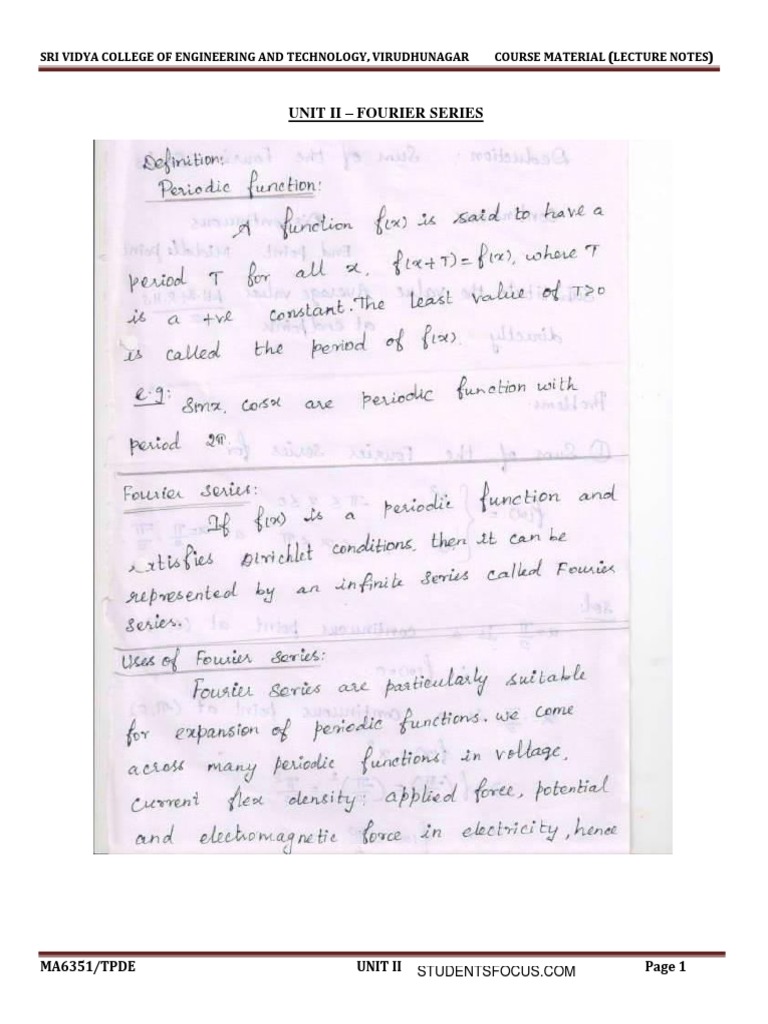 SRI VIDYA COLLEGE OF ENGINEERING AND TECHNOLOGY, VIRUDHUNAGAR COURSE MATERIAL (LECTURE NOTES)
UNIT II – FOURIER SERIES
Definition:
Periodic function:
A function f(x) is said to have a
period T for all x, f(x+T)=f(x), where T
is a +ve constant. The least value of T>0
is called the period of f(x).
e.g: Sinx, cosx are periodic function with
period 2π.
Fourier Series:
If f(x) is a periodic function and
satisfies Dirichlet conditions, then it can be
represented by an infinite series called Fourier
series.
Uses of Fourier Series:
Fourier Series are particularly suitable
for expansion of periodic functions. We come
across many periodic functions in voltage,
current flex density, applied force, potential
and electromagnetic force in electricity, hence
MA6351/TPDE UNIT II STUDENTSFOCUS.COM Page 1